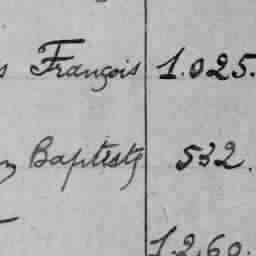 s François 1.025.
n Baptiste 532.
1.260.